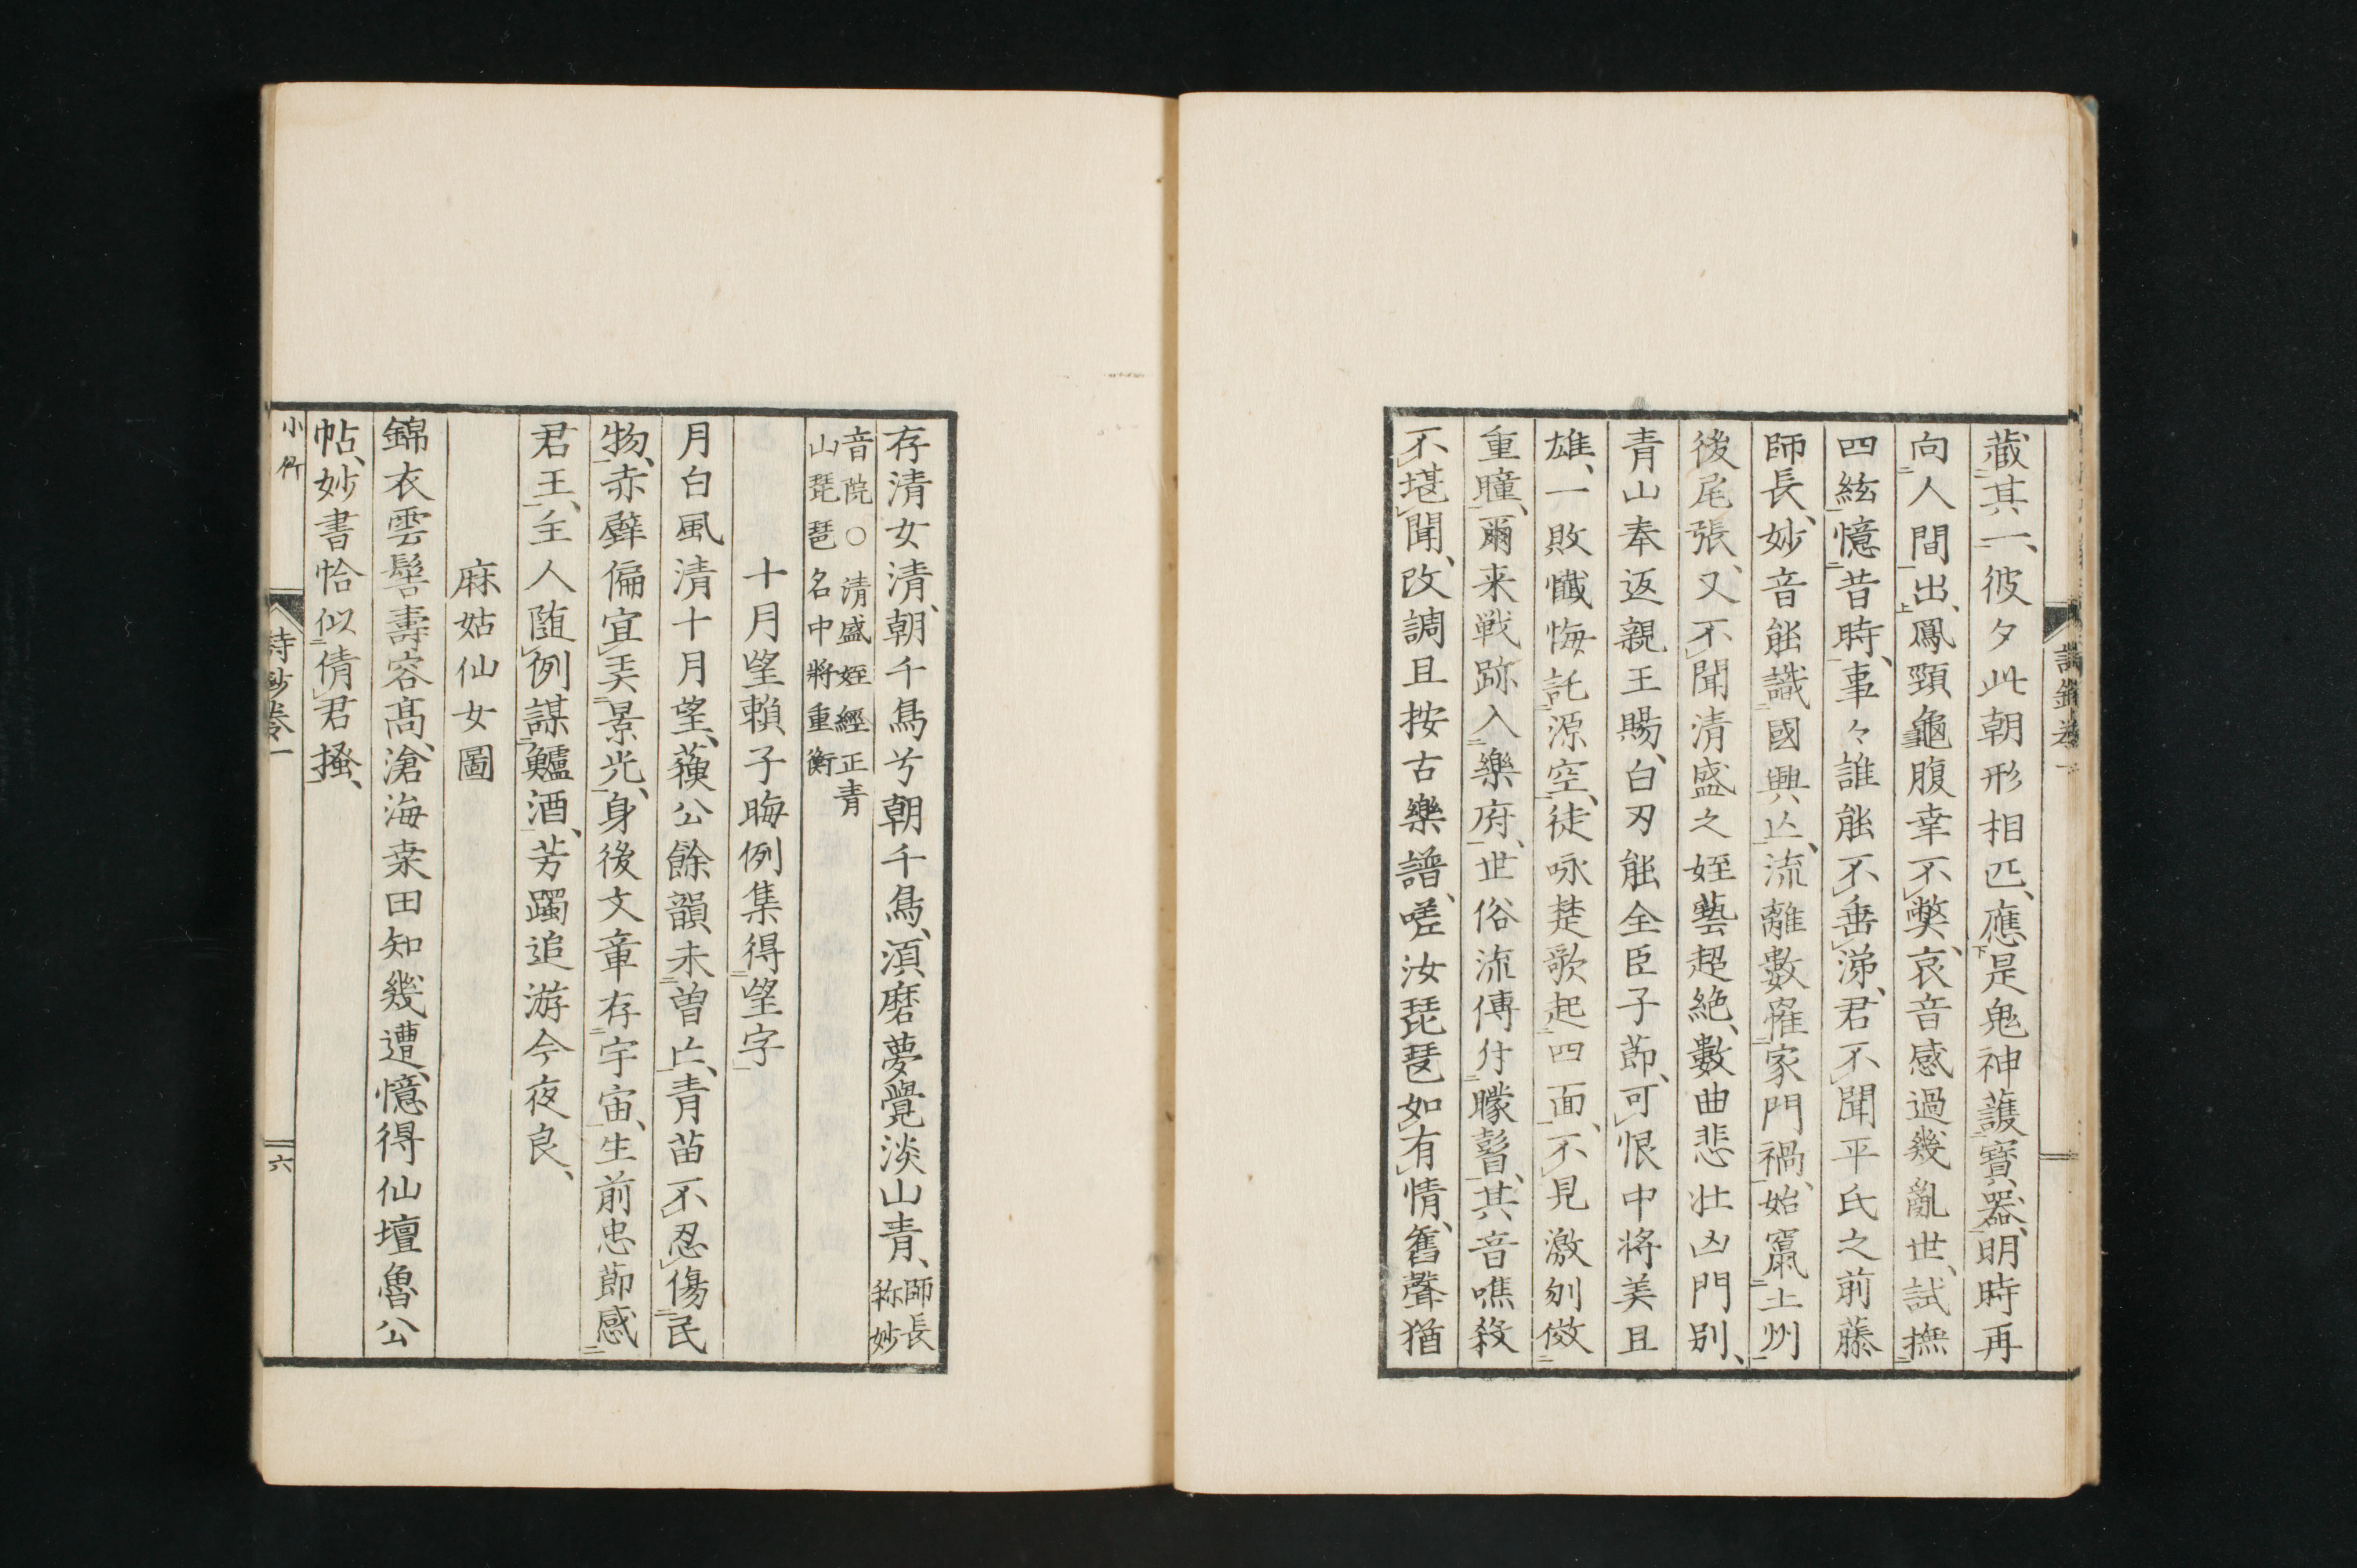 藏其一、彼夕此朝形相匹、應是鬼神護寶器、明時再
向人間出、鳳頸龜腹幸不弊、哀音感過幾亂世、試撫
四絃憶昔時、事々誰能不垂涕、君不聞平氏之前藤
師長、妙音能識國興亡、流離數罹家門禍、始竄土州
後尾張、又不聞清盛之姪藝超絶、數曲悲壯凶門別、
青山奉返親王賜、白刃能全臣子節、可恨中將美且
雄、一敗懺悔託源空、徒咏楚歌起四面、不見激刎傚
重瞳、爾来戦跡入樂府、世俗流傳付矇瞽、其音噍殺
不堪聞、改調且按古樂譜、嗟汝琵琶如有情、舊聲猶
詩鈔卷一
存清女清、朝千鳥兮朝千鳥、須磨夢覺淡山青、師長称妙
音院○清盛姪經正青
山琵琶名中將重衡
十月望賴子晦例集得望字
月白風清十月望、蘓公餘韻未曽亡、青苗不忍傷民
物、赤壁偏宜美景光、身後文章存宇宙、生前忠節感
君王、主人随例謀鱸酒、芳躅追游今夜良、
麻姑仙女圖
錦衣雲髻壽容髙、滄海桒田知幾遭、憶得仙壇魯公
帖、妙書恰似倩君搔、
小竹
詩鈔卷一
六